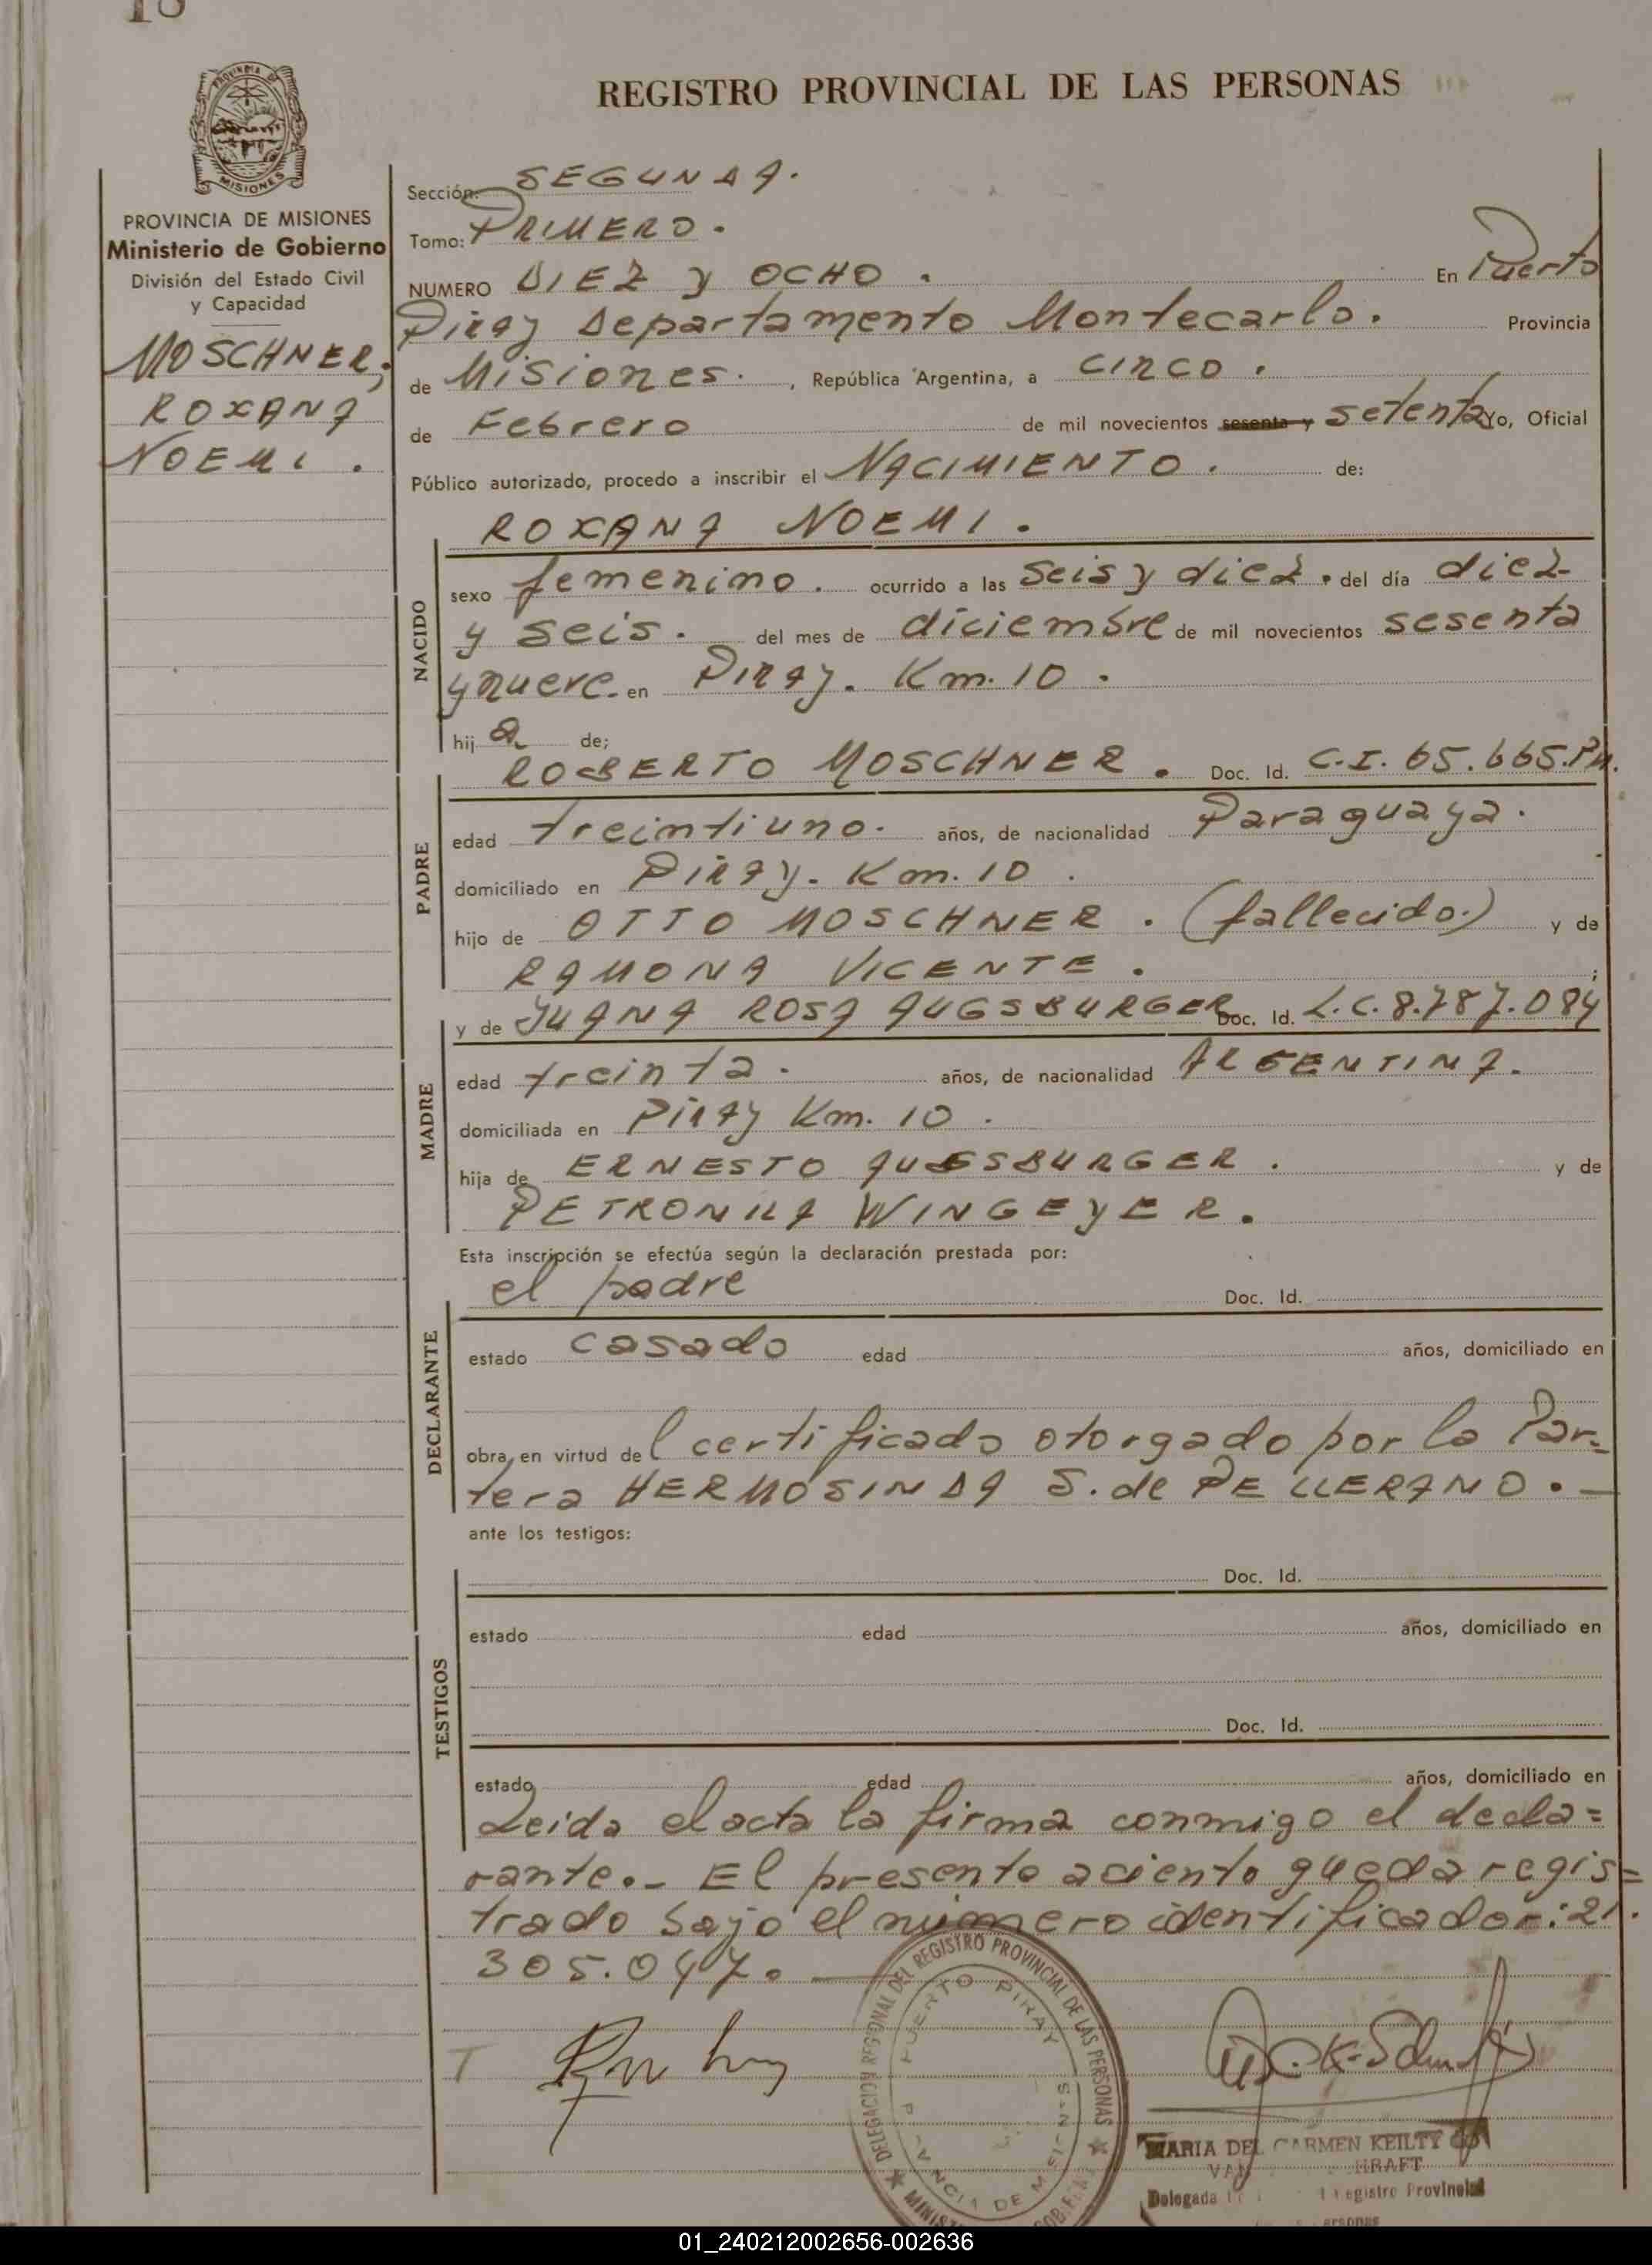 18
REGISTRO PROVINCIAL DE LAS PERSONAS
PROVINCIA DE MISIONES
PROVINCIA DE MISIONES
Ministerio de Gobierno
División del Estado Civil
y Capacidad
MOSCHNER,
ROXANA
NOEMI.
Sección: SEGUNDA.
Tomo: PRIMERO.
NUMERO DIEZ y OCHO. En Puerto
Piray Departamento Montecarlo. Provincia
de Misiones. , República Argentina, a CINCO.
de Febrero de mil novecientos sesenta y setenta Yo, Oficial
Público autorizado, procedo a inscribir el NACIMIENTO. de:
ROXANA NOEMI.
NACIDO
sexo femenino. ocurrido a las seis y diez. del día diez
y seis. del mes de diciembre de mil novecientos sesenta
y nueve. en Piray. Km. 10.
hij a de;
ROBERTO MOSCHNER. Doc. Id. C.I. 65.665.Pn.
PADRE
edad treintiuno. años, de nacionalidad Paraguaya.
domiciliado en Piray. Km. 10.
hijo de OTTO MOSCHNER. (fallecido.) y de
RAMONA VICENTE. ;
y de JUANA ROSA AUGSBURGER Doc. Id. L.C. 8.787.084
MADRE
edad treinta. años, de nacionalidad ARGENTINA.
domiciliada en Piray Km. 10.
hija de ERNESTO AUGSBURGER. y de
PETRONILA WINGEYER.
Esta inscripción se efectúa según la declaración prestada por:
el padre Doc. Id.
DECLARANTE
estado casado edad años, domiciliado en
obra, en virtud del certificado otorgado por la Par=
tera HERMOSINDA S. de PELLERANO. —
ante los testigos:
Doc. Id.
TESTIGOS
estado edad años, domiciliado en
Doc. Id.
estado edad años, domiciliado en
Leida el acta la firma conmigo el decla=
rante.- El presente aciento queda regis=
trado bajo el número identificador: 21.
305.047. —
DELEGACION REGIONAL DEL REGISTRO PROVINCIAL DE LAS PERSONAS
PUERTO PIRAY
MARIA DEL CARMEN KEILTY
Delegada Registro Provincial
01_240212002656-002636